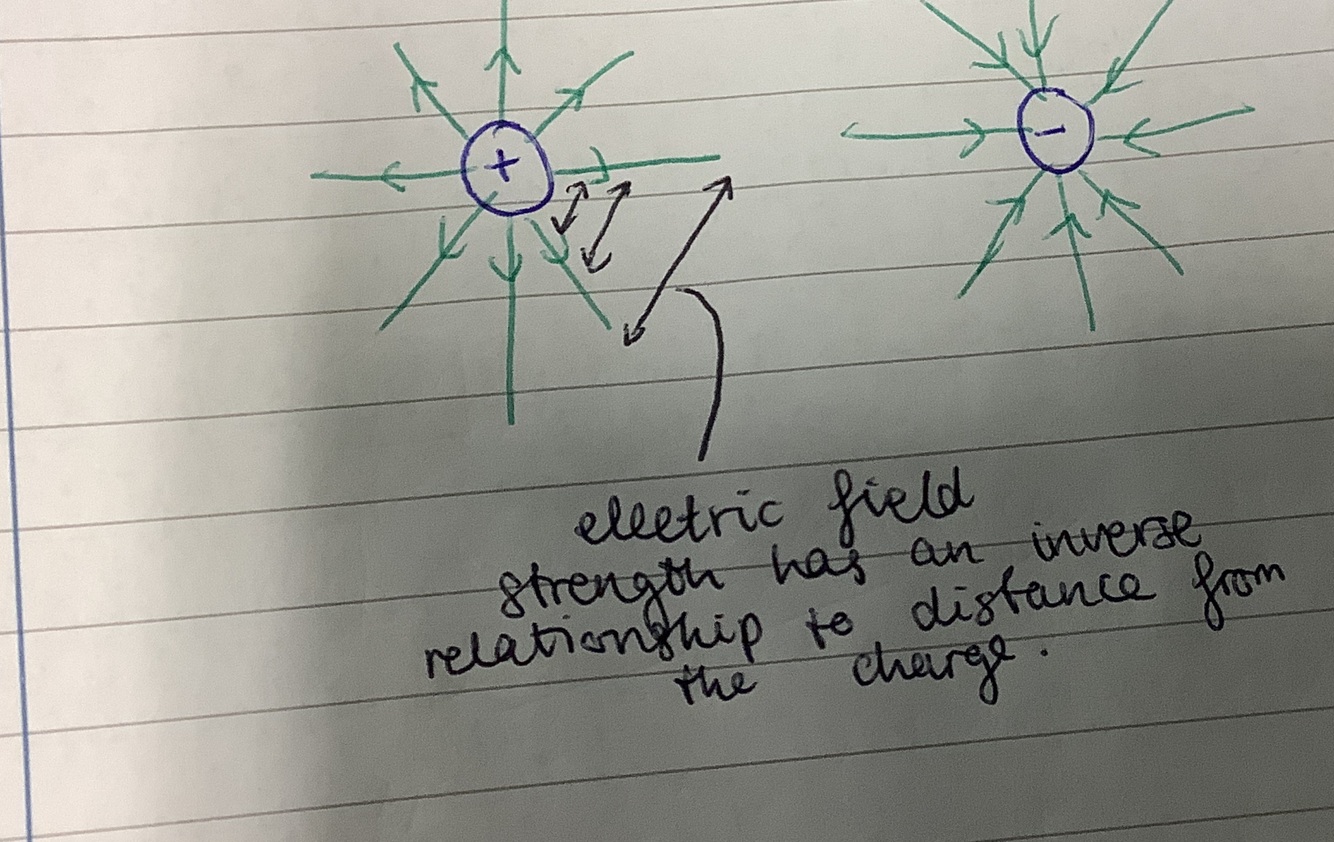 +
−
electric field
strength has an inverse
relationship to distance from
the charge.